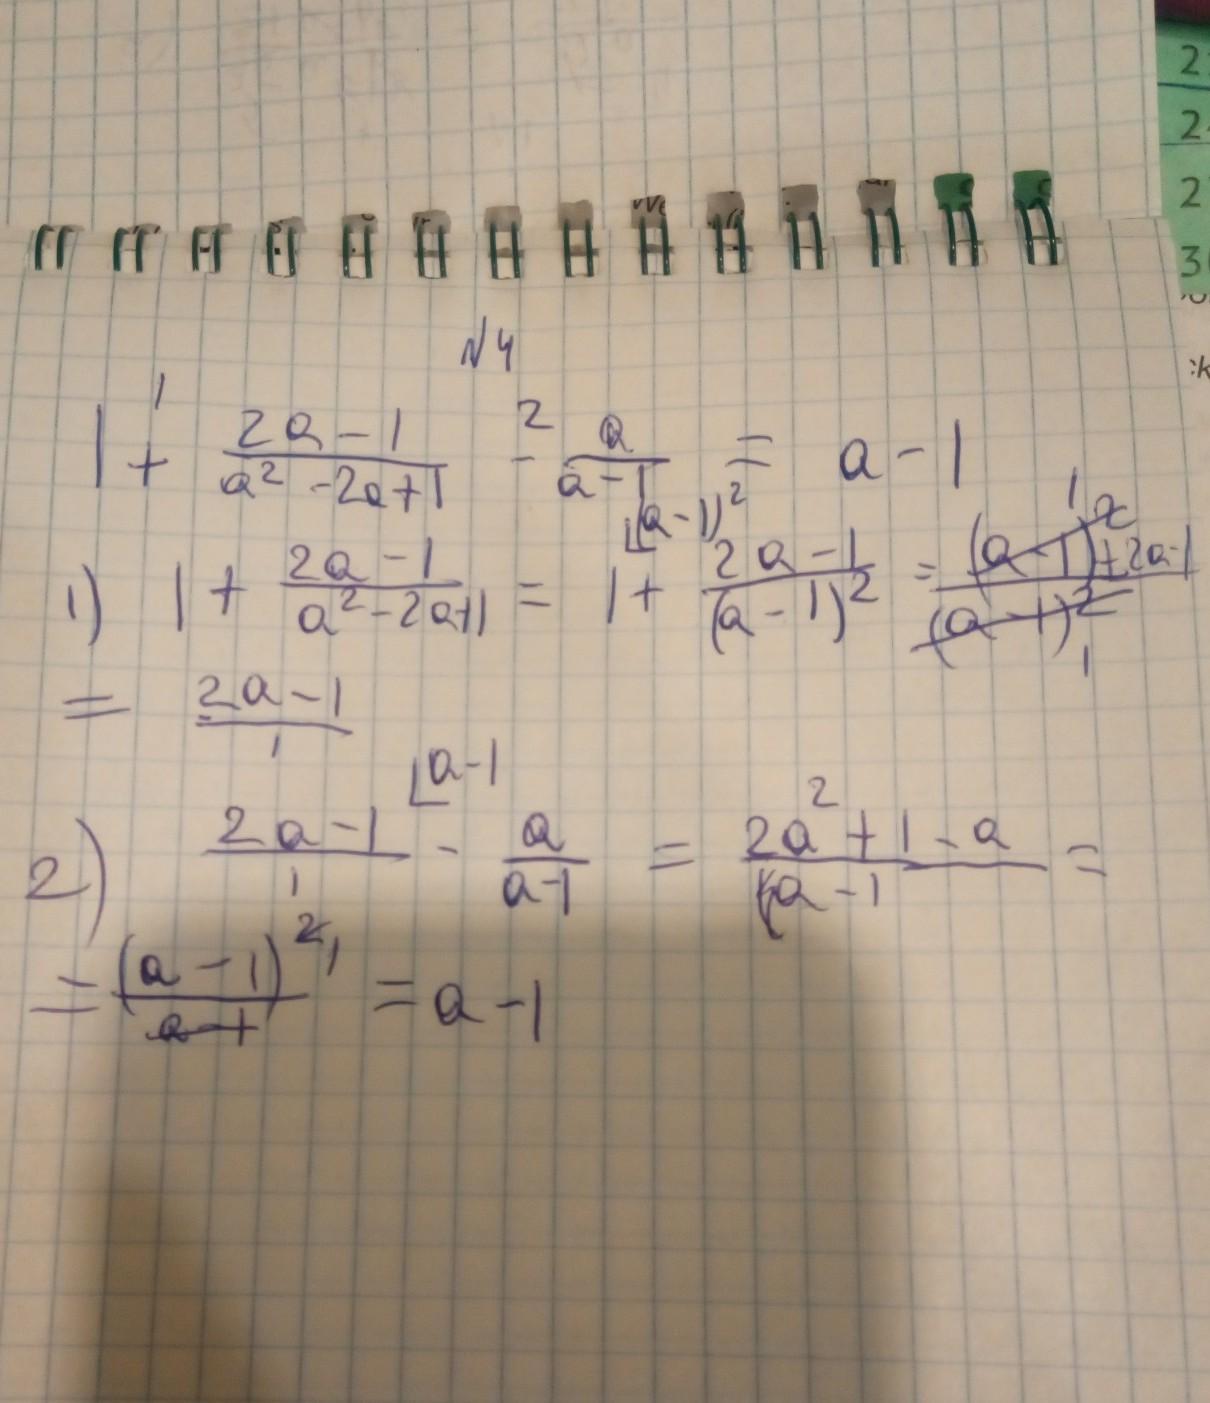 №4
1 + (2a - 1)/(a² - 2a + 1) - a/(a - 1) = a - 1
1) 1 + (2a - 1)/(a² - 2a + 1) = 1 + (2a - 1)/(a - 1)² = ((a - 1)² + 2a - 1)/(a - 1)²
= (2a - 1)/1
2) (2a - 1)/1 - a/(a - 1) = (2a² + 1 - a)/(a - 1) =
= (a - 1)²/(a - 1) = a - 1